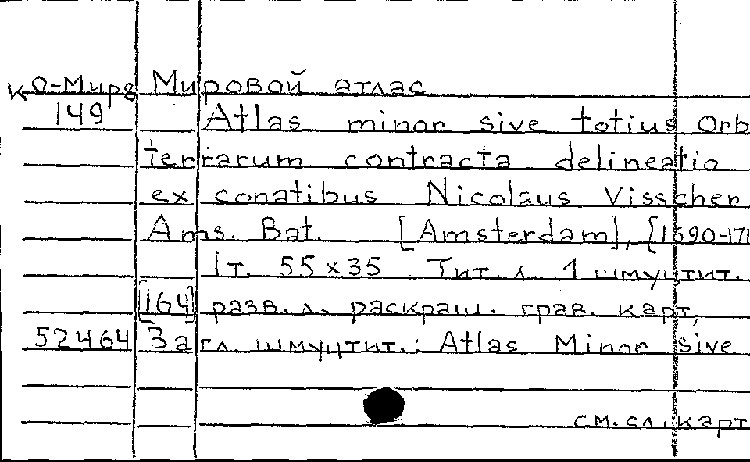 К О-Мира Мировой атлас
149 Atlas minor sive totius Orb
terrarum contracta delineatio
ex conatibus Nicolaus Visscher
Ams. Bat. [Amsterdam], [1690-171
1т. 55x35. Тит. л. 1 шмуцтит.
[164] разв. л. раскраш. грав. карт.
52464 Загл. шмуцтит.: Atlas Minor sive
см. сл. карт